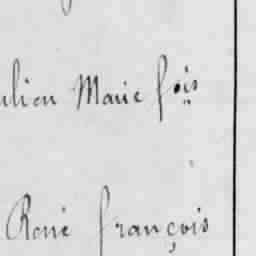 ulien Marie fois
René françois